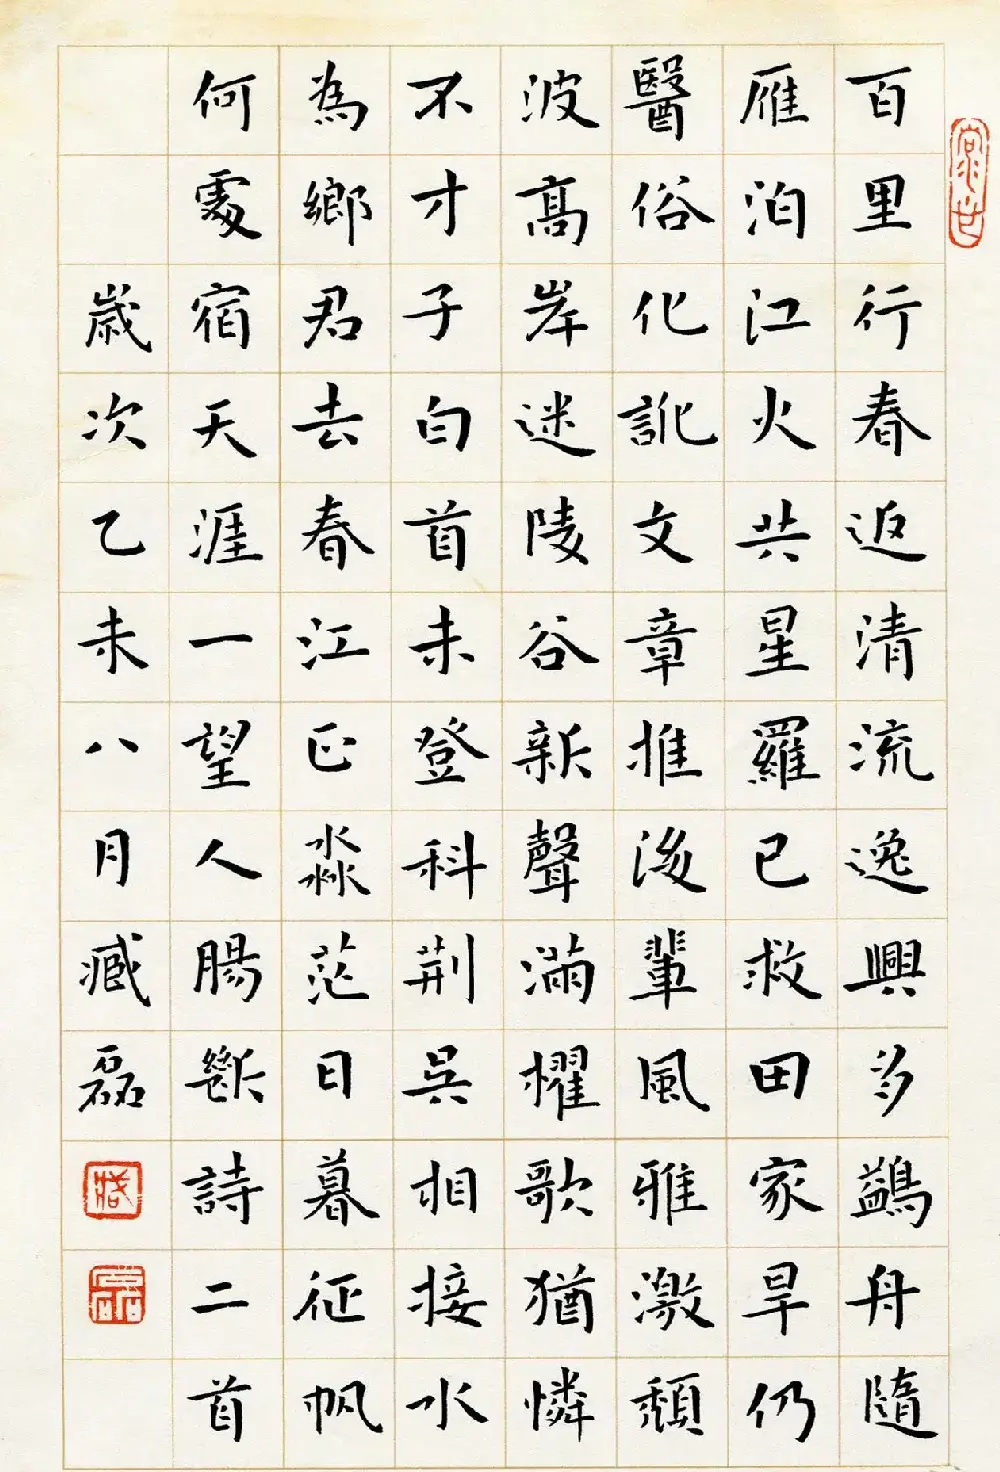 百里行春返清流逸興多鷁舟隨
雁泊江火共星羅已救田家旱仍
醫俗化訛文章推後輩風雅激頹
波高岸迷陵谷新聲滿櫂歌猶憐
不才子白首未登科荆吳相接水
為鄉君去春江正淼茫日暮征帆
何處宿天涯一望人腸斷詩二首
歲次乙未八月臧磊
臧
磊